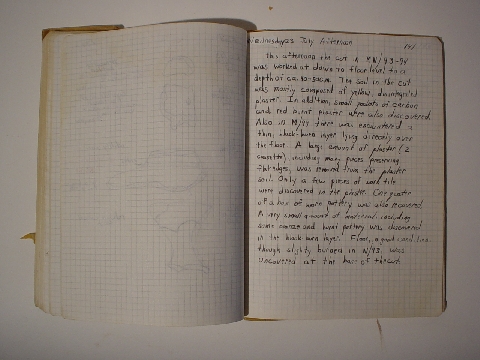 Wednesday 23 July Afternoon
This afternoon the cut in M, N/93-94
was worked at down to floor level to a
depth of ca. 40-50cm. The soil in the cut
was mostly composed of yellow, disintegrated
plaster. In addition, small pockets of carbon
and red burnt plaster were also discovered.
Also in N/94 there was encountered a
thin, black burn layer lying directly over
the floor. A large amount of plaster (2
), including many pieces preserving
flat edges, was removed from the plaster
soil. Only a few pieces of roof tile
were discovered in the plaster. One quarter
of a box of ware pottery was also recovered.
A very small amount of material including
some bronze and burnt pottery was discovered
in the black burn layer. Floor, in good condition
though slightly burned in N/93, was
uncovered at the base of the cut.